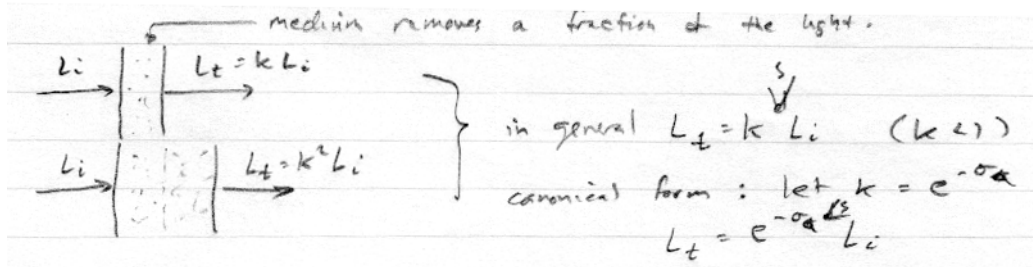 medium removes a fraction of the light.
Li
Lt = k Li
in general Lt = k^s Li (k<1)
Li
Lt = k² Li
canonical form : let k = e^-σa
Lt = e^-σa s Li